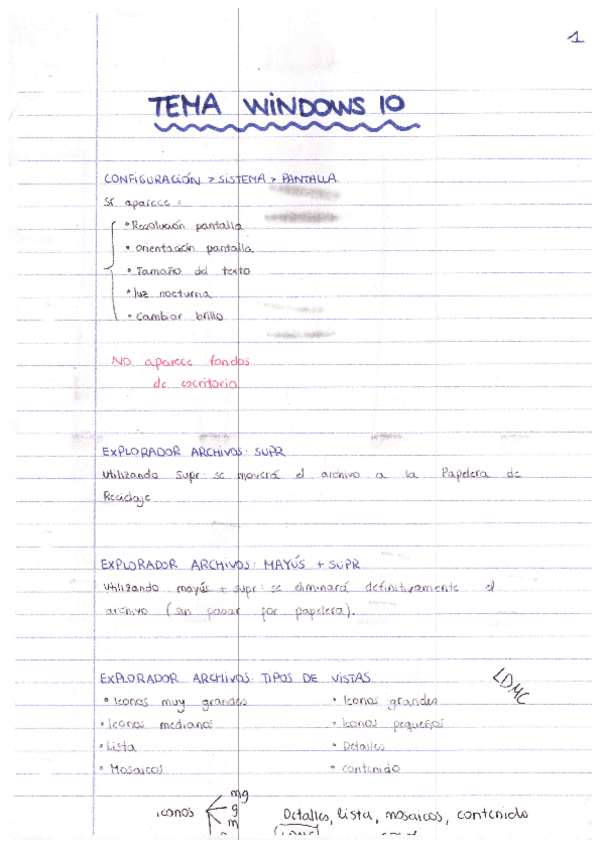 1
TEMA WINDOWS 10
CONFIGURACIÓN > SISTEMA > PANTALLA
Sí aparece:
• Resolución pantalla
• Orientación pantalla
• Tamaño del texto
• luz nocturna
• Cambiar brillo
No aparece fondos
de escritorio
EXPLORADOR ARCHIVOS: SUPR
Utilizando Supr: se moverá el archivo a la Papelera de
Reciclaje
EXPLORADOR ARCHIVOS: MAYÚS + SUPR
Utilizando mayús + supr: se eliminará definitivamente el
archivo (sin pasar por papelera).
EXPLORADOR ARCHIVOS: TIPOS DE VISTAS
LDMC
• Iconos muy grandes • Iconos grandes
• Iconos medianos • Iconos pequeños
• Lista • Detalles
• Mosaicos • contenido
iconos mg
g
m
Detalles, lista, mosaicos, contenido